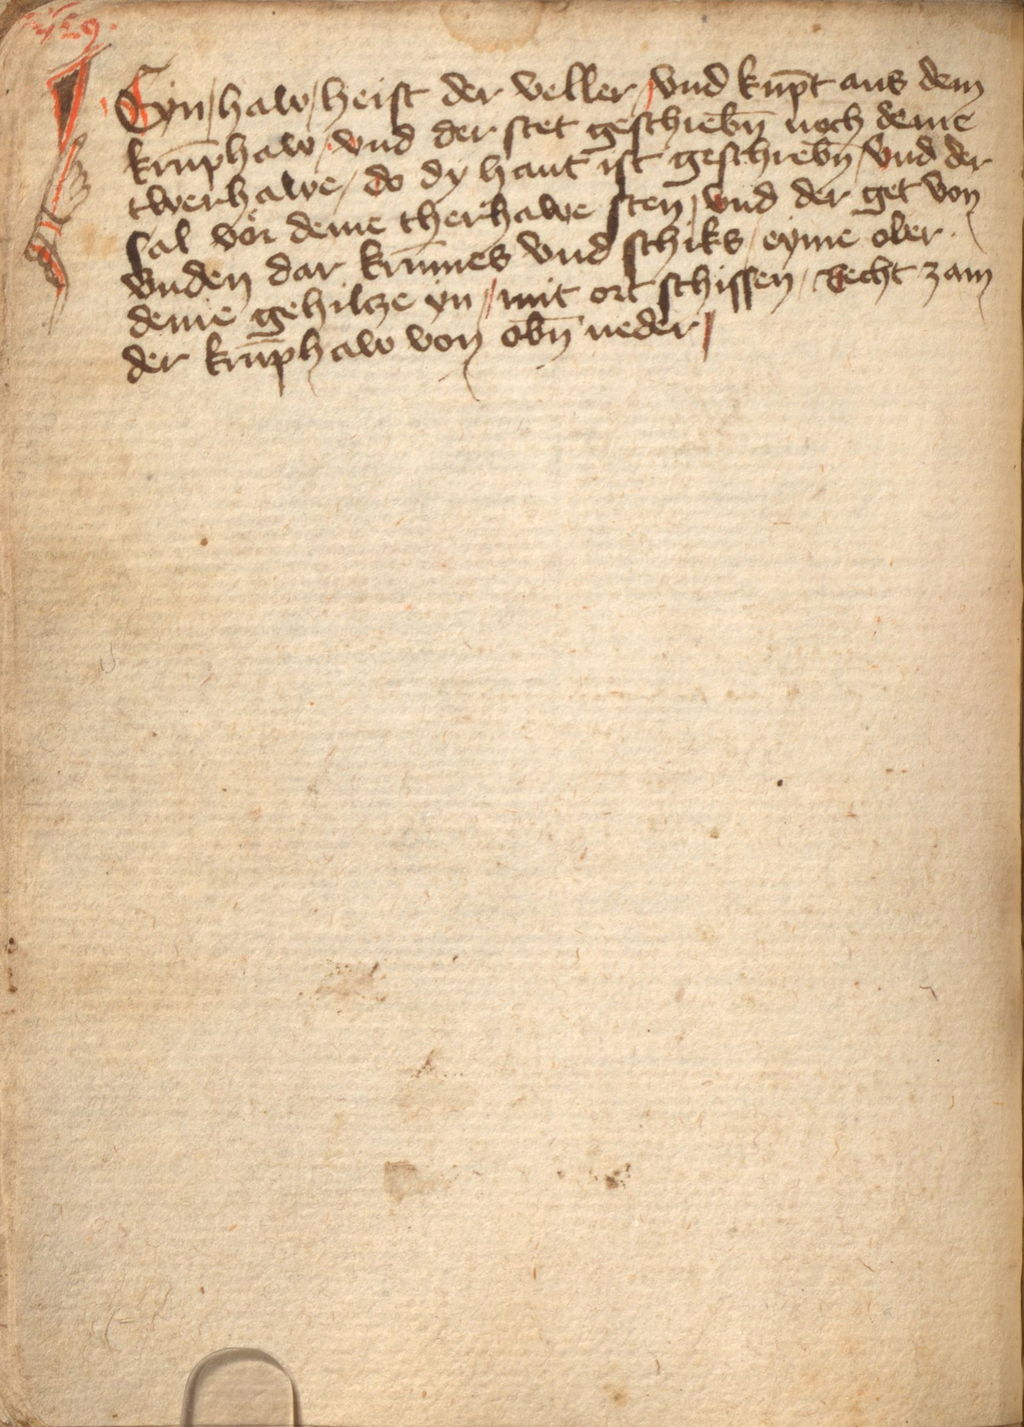 Eyn / haw / heist der veller / vnd kūpt aus dem
krūphaw / vnd der stet geschrebñ noch deme
twerhawe / do dy hant ist geschrebñ / vnd der
sal vör deme therhawe sten / vnd der get von
vnden dar krūmes vnd schiks / eyme ober
deme gehilcze yn / mit ort schissen / Recht zam
der krūphaw von obñ neder /